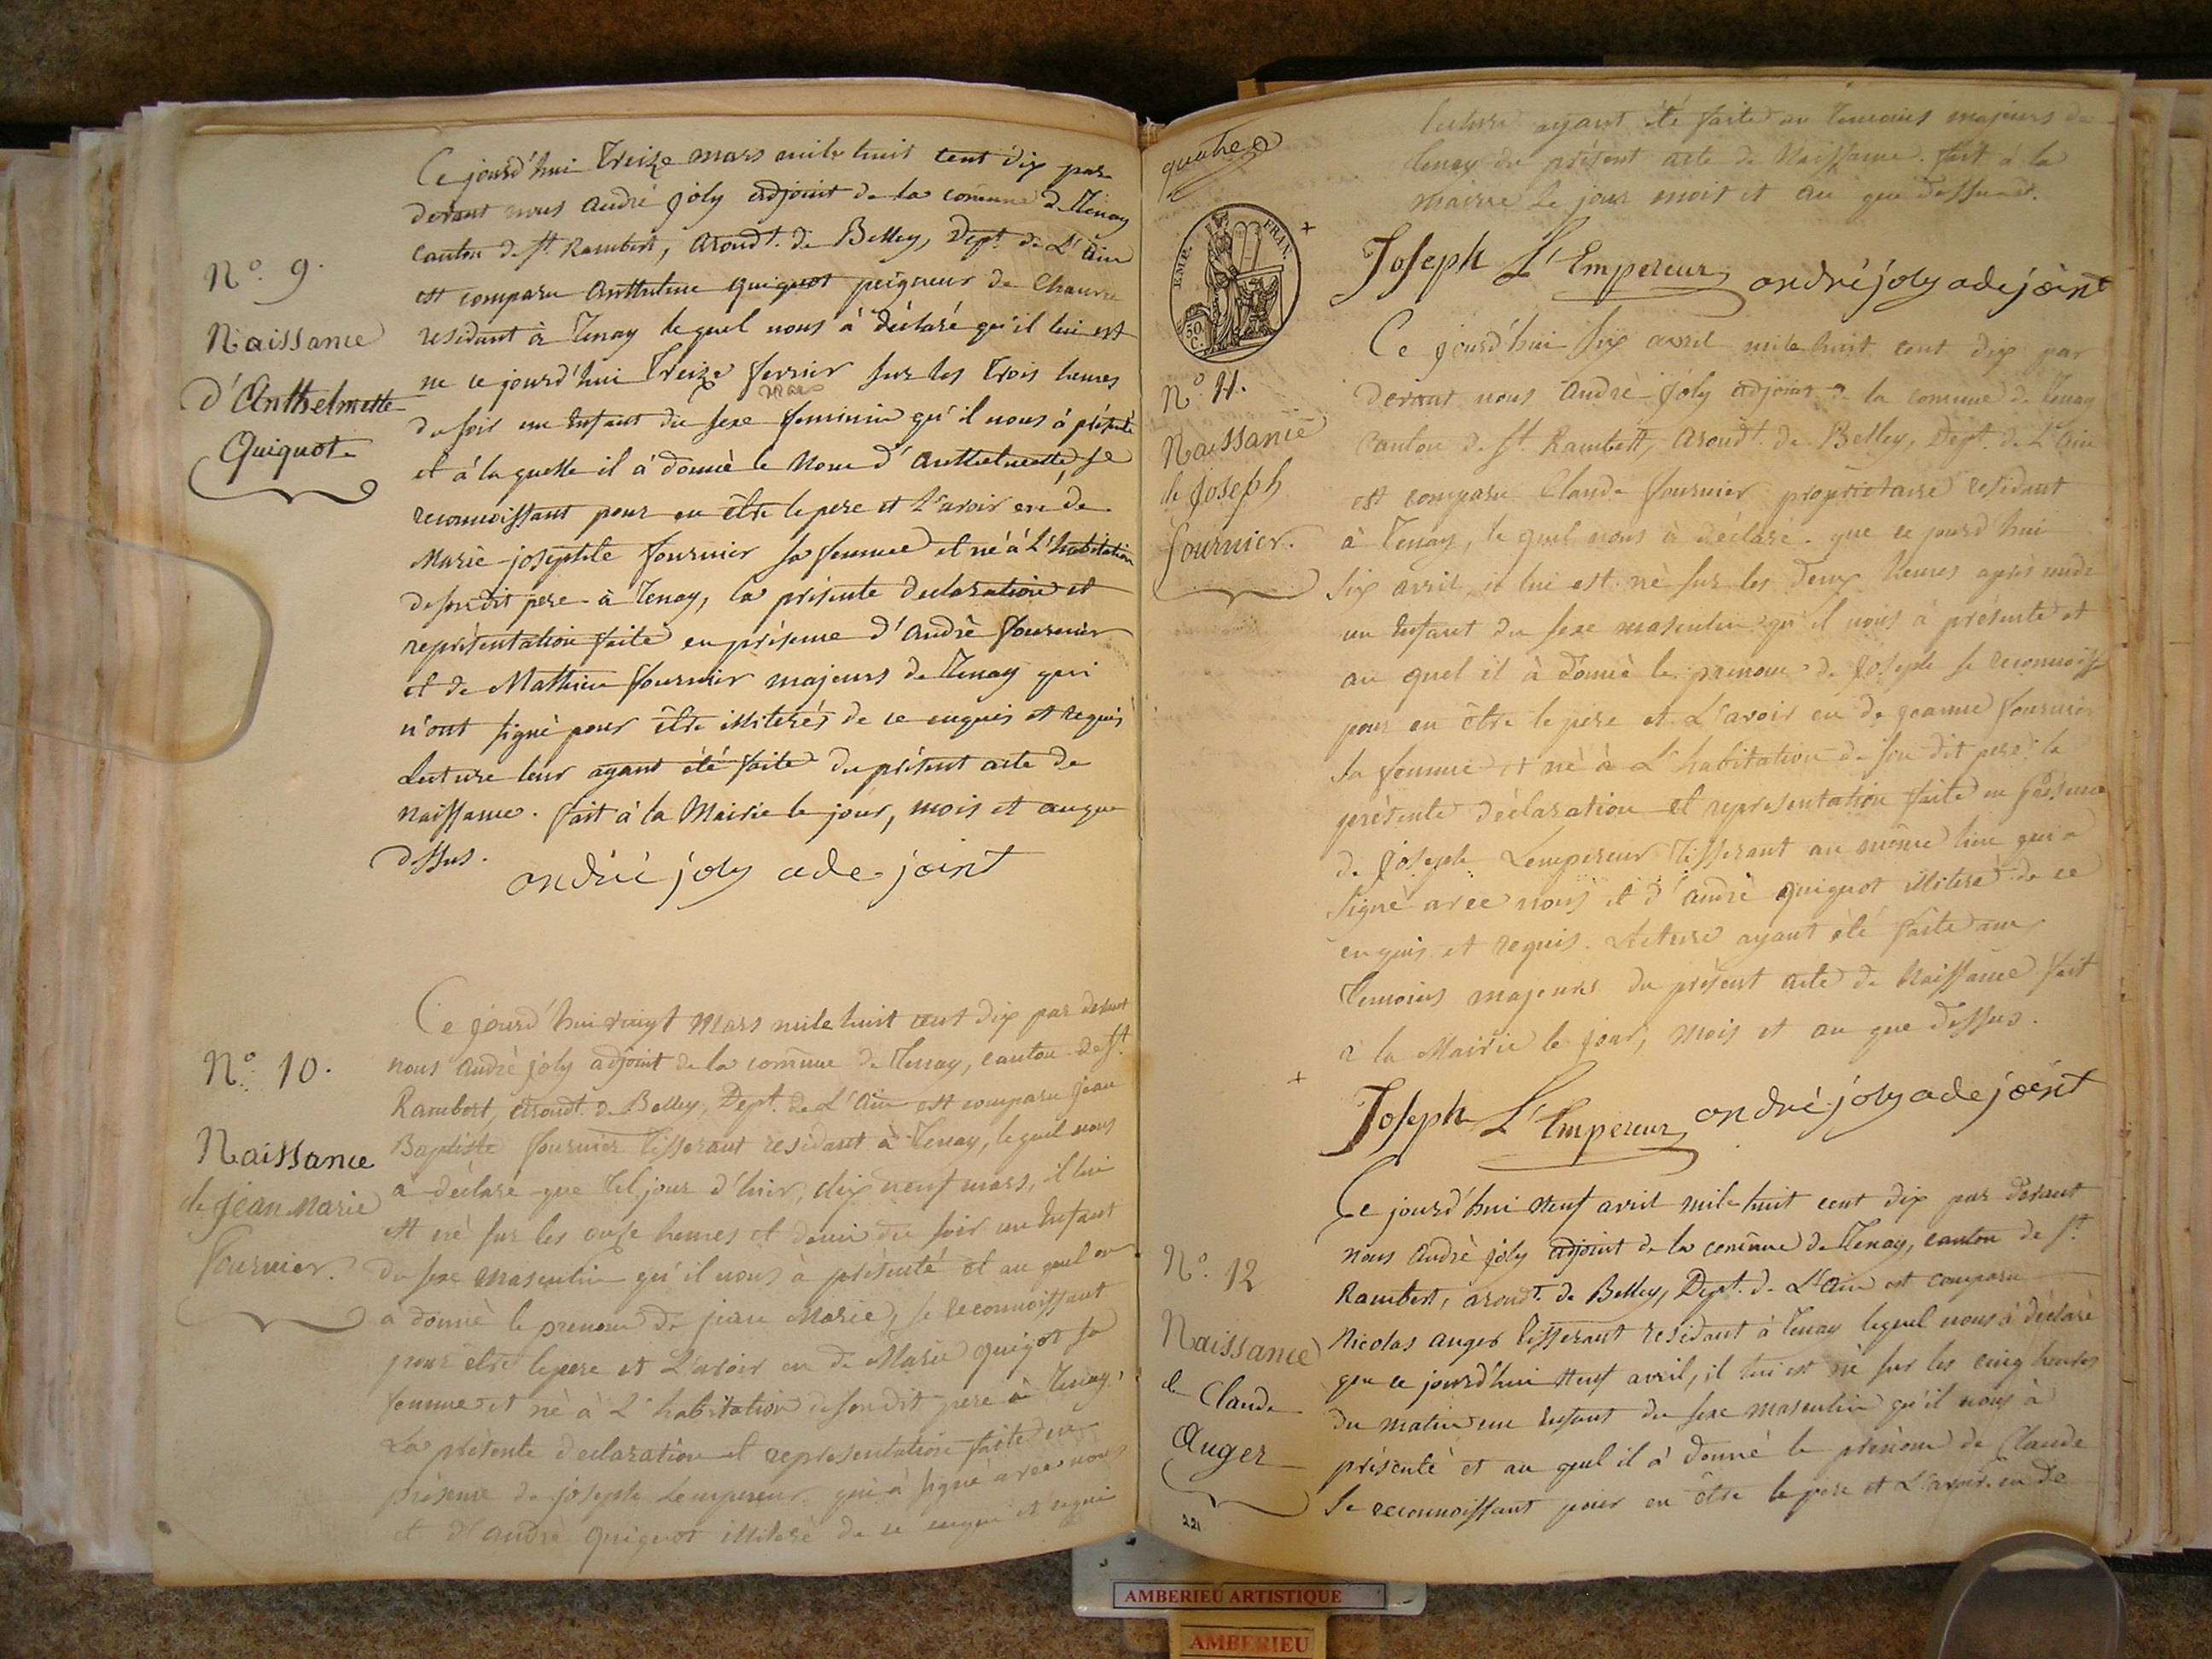 Ce jourd'hui treize mars mile huit cent dix par
devant nous andré joly adjoint de la comune de Tenay
canton de St. Rambert, arondt. de Belley, Dept. de L'ain
est comparu anthelme quiquot peigneur de Chanvre
residant à Tenay lequel nous à déclaré qu'il lui est
né ce jourd'hui treize fevrier sur les trois heures
mars
du soir un Enfant du sexe feminin qu'il nous à présenté
et à la quelle il à donné le Nom d'anthelmette, se
reconnoissant pour en être le pere et L'avoir eu de
Marie-josephte fournier sa femme et né à L'habitation
de son dit pere à Tenay, la présente declaration et
représentation faite en présence d'andré fournier
et de Mathieu fournier majeurs de Tenay qui
n'ont signé pour être illiterés de ce enquis et requis
Lecture leur ayant été faite du présent acte de
naissance. fait à la Mairie le jour, mois et an que
dessus.
andré joly adejoint
No. 9.
Naissance
d'Anthelmette
Quiquot
Ce jourd'hui vingt mars mile huit cent dix par devant
nous andré joly adjoint de la comune de Tenay, canton de St.
Rambert, arondt. de Belley, Dept. de L'ain est comparu jean
Baptiste fournier tisserant residant à Tenay, lequel nous
à déclaré que Le jour d'hier, dix neuf mars, il lui
est né sur les onze heures et demi du soir un Enfant
du sexe masculin qu'il nous à présenté et au quel on
à donné le prenom de jean Marie, se reconnoissant
pour être le pere et L'avoir eu de Marie quiqot sa
femme et né à L'habitation de son dit pere à Tenay,
La présente declaration et representation faite en
présence de joseph Lempereur qui à signé avec nous
et d'andré quiquot illiteré de ce enquis et requis
No. 10.
Naissance
de jean Marie
fournier.
quatre
EMP. FRAN.
50 C.
lecture ayant été faite au temoins majeurs de
tenay du présent acte de Naissance. fait à la
mairie le jour mois et an que dessus.
Joseph L'Empereur andré joly adejoint
Ce jourd'hui six avril mile huit cent dix par
devant nous andré joly adjoint de la comune de Tenay
Canton de St. Rambert, arondt. de Belley, Dept. de L'ain
est comparu Claude fournier proprietaire residant
à Tenay, le quel nous à déclaré que ce jourd'hui
six avril il lui est né sur les deux heures après midi
un Enfant du sexe masculin qu'il nous à présenté et
au quel il à donné le prenom de joseph se reconnoiss
pour en être le pere et L'avoir eu de jeanne fournier
sa femme et né à L'habitation de son dit pere la
présente déclaration et representation faite en présence
de joseph Lempereur tisserant au même lieu qui a
signé avec nous et d'andré quiquot illiteré de ce
enquis et requis. Lecture ayant été faite aux
temoins majeurs du présent acte de Naissance fait
à la Mairie le jour, mois et an que dessus.
Joseph L'Empereur andré joly adejoint
No. 11.
Naissance
de joseph
fournier.
Ce jourd'hui Neuf avril mile huit cent dix par devant
nous andré joly adjoint de la comune de Tenay, canton de St
Rambert, arondt. de Belley, Dept. de L'ain est comparu
Nicolas auger tisserant residant à Tenay lequel nous à déclaré
que ce jourd'hui Neuf avril, il lui est né sur les cinq heures
du matin un Enfant du sexe masculin qu'il nous à
présenté et au quel il à donné le prénom de Claude
se reconnoissant pour en être le pere et L'avoir eu de
No. 12
Naissance
de Claude
Auger
221
AMBERIEU ARTISTIQUE
AMBERIEU